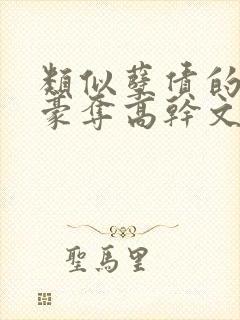 類似孽債的
豪奪高幹文
聖馬里